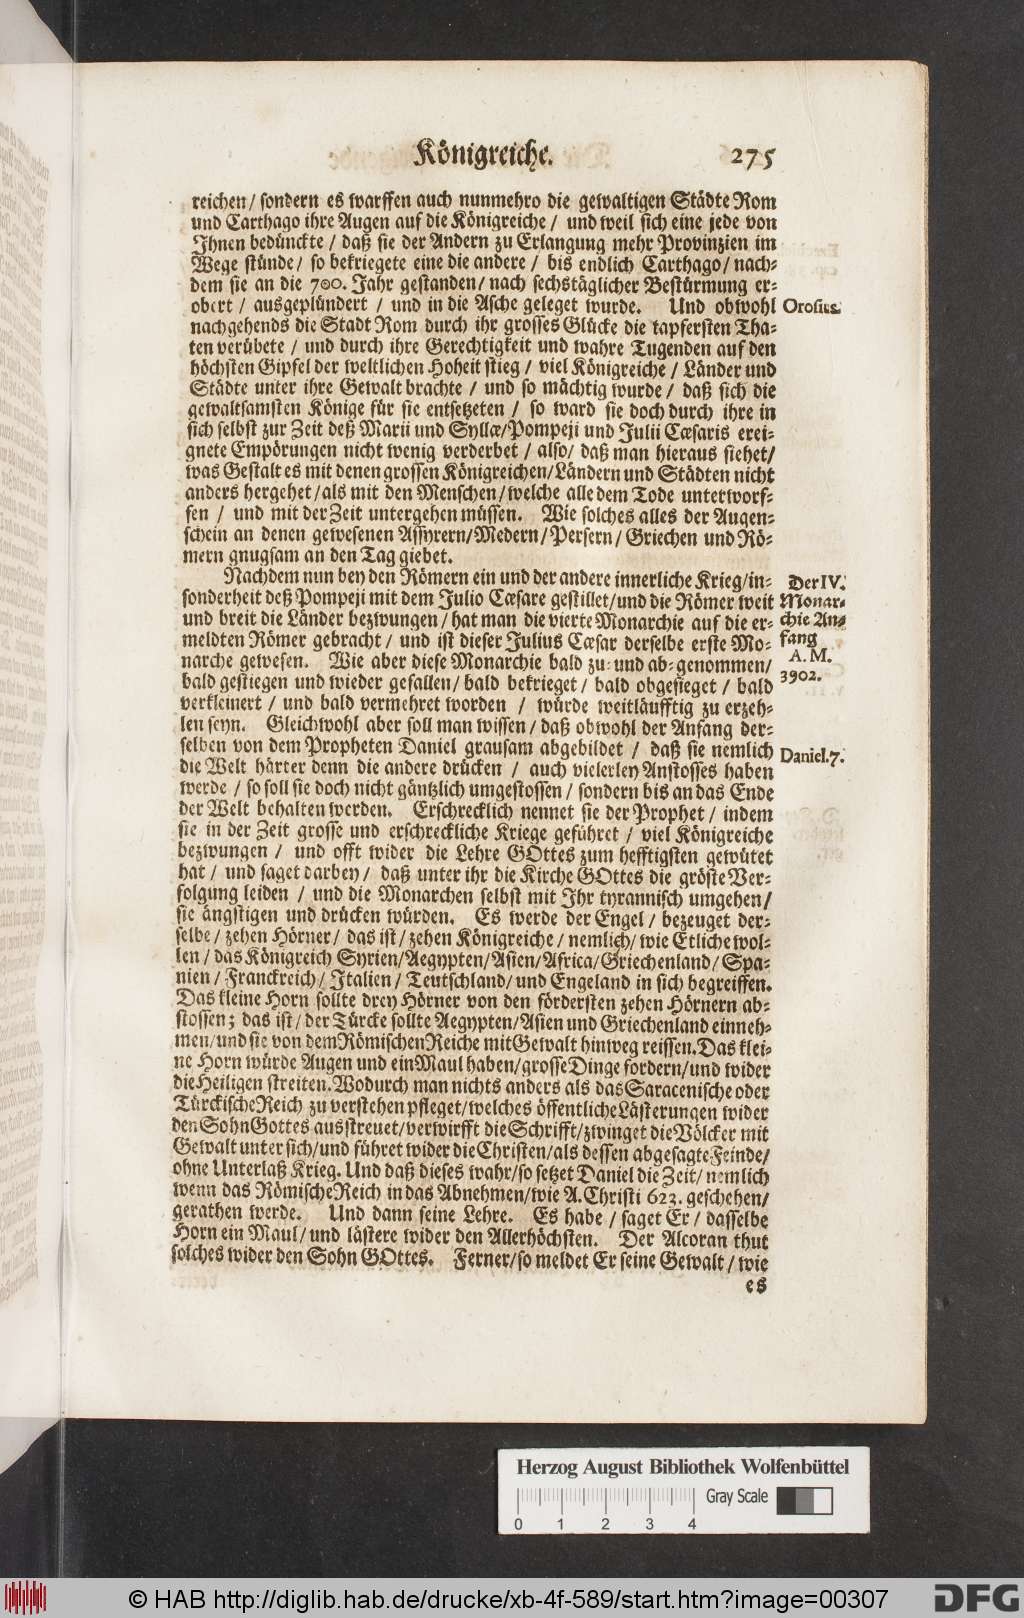 Königreiche. 275
reichen / sondern es warffen auch nunmehro die gewaltigen Städte Rom
und Carthago ihre Augen auf die Königreiche / und weil sich eine jede von
Ihnen bedünckte / daß sie der Andern zu Erlangung mehr Provinzien im
Wege stünde / so bekriegete eine die andere / bis endlich Carthago / nach-
dem sie an die 700. Jahr gestanden / nach sechstäglicher Bestürmung er-
obert / ausgeplündert / und in die Asche geleget wurde. Und obwohl
Orosius.
nachgehends die Stadt Rom durch ihr grosses Glücke die tapfersten Tha-
ten verübete / und durch ihre Gerechtigkeit und wahre Tugenden auf den
höchsten Gipfel der weltlichen Hoheit stieg / viel Königreiche / Länder und
Städte unter ihre Gewalt brachte / und so mächtig wurde / daß sich die
gewaltsamsten Könige für sie entsetzeten / so ward sie doch durch ihre in
sich selbst zur Zeit deß Marii und Syllæ / Pompeji und Julii Cæsaris erei-
gnete Empörungen nicht wenig verderbet / also / daß man hieraus siehet /
was Gestalt es mit denen grossen Königreichen / Ländern und Städten nicht
anders hergehet / als mit den Menschen / welche alle dem Tode unterworf-
fen / und mit der Zeit untergehen müssen. Wie solches alles der Augen-
schein an denen gewesenen Assyrern / Medern / Persern / Griechen und Rö-
mern gnugsam an den Tag giebet.
Nachdem nun bey den Römern ein und der andere innerliche Krieg / in-
sonderheit deß Pompeji mit dem Julio Cæsare gestillet / und die Römer weit
und breit die Länder bezwungen / hat man die vierte Monarchie auf die er-
meldten Römer gebracht / und ist dieser Julius Cæsar derselbe erste Mo-
narche gewesen. Wie aber diese Monarchie bald zu- und ab-genommen /
bald gestiegen und wieder gefallen / bald bekrieget / bald obgesieget / bald
verkleinert / und bald vermehret worden / würde weitläufftig zu erzeh-
len seyn. Gleichwohl aber soll man wissen / daß obwohl der Anfang der-
Der IV.
Monar-
chie An-
fang
A. M.
3902.
selben von dem Propheten Daniel grausam abgebildet / daß sie nemlich
Daniel. 7.
die Welt härter denn die andere drücken / auch vielerley Anstosses haben
werde / so soll sie doch nicht gäntzlich umgestossen / sondern bis an das Ende
der Welt behalten werden. Erschrecklich nennet sie der Prophet / indem
sie in der Zeit grosse und erschreckliche Kriege geführet / viel Königreiche
bezwungen / und offt wider die Lehre GOttes zum hefftigsten gewütet
hat / und saget darbey / daß unter ihr die Kirche GOttes die gröste Ver-
folgung leiden / und die Monarchen selbst mit Ihr tyrannisch umgehen /
sie ängstigen und drücken würden. Es werde der Engel / bezeuget der-
selbe / zehen Hörner / das ist / zehen Königreiche / nemlich / wie Etliche wol-
len / das Königreich Syrien / Aegypten / Asien / Africa / Griechenland / Spa-
nien / Franckreich / Italien / Teutschland / und Engeland in sich begreiffen.
Das kleine Horn sollte drey Hörner von den fördersten zehen Hörnern ab-
stossen; das ist / der Türcke sollte Aegypten / Asien und Griechenland einneh-
men / und sie von dem Römischen Reiche mit Gewalt hinweg reissen. Das klei-
ne Horn würde Augen und ein Maul haben / grosse Dinge fordern / und wider
die Heiligen streiten. Wodurch man nichts anders als das Saracenische oder
Türckische Reich zu verstehen pfleget / welches öffentliche Lästerungen wider
den Sohn Gottes ausstreuet / verwirfft die Schrifft / zwinget die Völcker mit
Gewalt unter sich / und führet wider die Christen / als dessen abgesagte Feinde /
ohne Unterlaß Krieg. Und daß dieses wahr / so setzet Daniel die Zeit / nemlich
wenn das Römische Reich in das Abnehmen / wie A. Christi 623. geschehen /
gerathen werde. Und dann seine Lehre. Es habe / saget Er / dasselbe
Horn ein Maul / und lästere wider den Allerhöchsten. Der Alcoran thut
solches wider den Sohn GOttes. Ferner / so meldet Er seine Gewalt / wie
es
Herzog August Bibliothek Wolfenbüttel
Gray Scale
0 1 2 3 4
© HAB http://diglib.hab.de/drucke/xb-4f-589/start.htm?image=00307
DFG